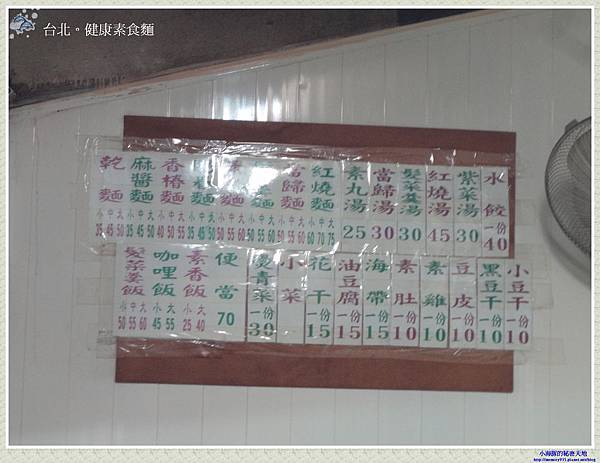 台北。健康素食麵
水餃 一份 40
紫菜湯 30
紅燒湯 45
髮菜羹湯 30
當歸湯 30
素丸湯 25
紅燒麵 小 中 大 60 70 75
當歸麵 小 中 大 50 55 60
麵 小 中 大 50 55 60
麵 小 中 大 50 55 60
麵 小 中 大
香椿麵 小 中 大 40 50 55
麻醬麵 小 中 大 35 45 50
乾麵 小 中 大 35 45 50
小豆干 一份 10
黑豆干 一份 10
豆皮 一份 10
素雞 一份 10
素肚 一份 10
海帶 一份 15
油豆腐 一份 15
花干 一份 15
小菜
燙青菜 一份 30
便當 70
素香飯 小 大 25 40
咖哩飯 小 大 45 55
髮菜羹飯 小 中 大 50 55 60
小海豚的秘密天地